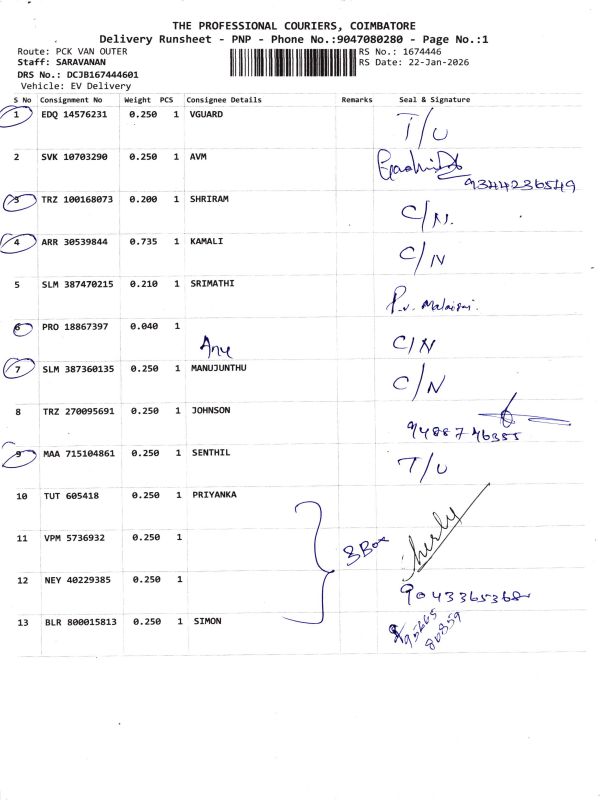 THE PROFESSIONAL COURIERS, COIMBATORE
Delivery Runsheet - PNP - Phone No.:9047080280 - Page No.:1
Route: PCK VAN OUTER
RS No.: 1674446
Staff: SARAVANAN
RS Date: 22-Jan-2026
DRS No.: DCJB167444601
Vehicle: EV Delivery
S No Consignment No Weight PCS Consignee Details Remarks Seal & Signature
1 EDQ 14576231 0.250 1 VGUARD T/U
2 SVK 10703290 0.250 1 AVM
9344236549
3 TRZ 100168073 0.200 1 SHRIRAM C/N.
4 ARR 30539844 0.735 1 KAMALI C/N
5 SLM 387470215 0.210 1 SRIMATHI
P.v.
6 PRO 18867397 0.040 1 C/N
7 SLM 387360135 0.250 1 MANUJUNTHU C/N
8 TRZ 270095691 0.250 1 JOHNSON
9488746355
9 MAA 715104861 0.250 1 SENTHIL T/U
10 TUT 605418 0.250 1 PRIYANKA
11 VPM 5736932 0.250 1
3 Box
12 NEY 40229385 0.250 1
9043365368
13 BLR 800015813 0.250 1 SIMON
95665
80859